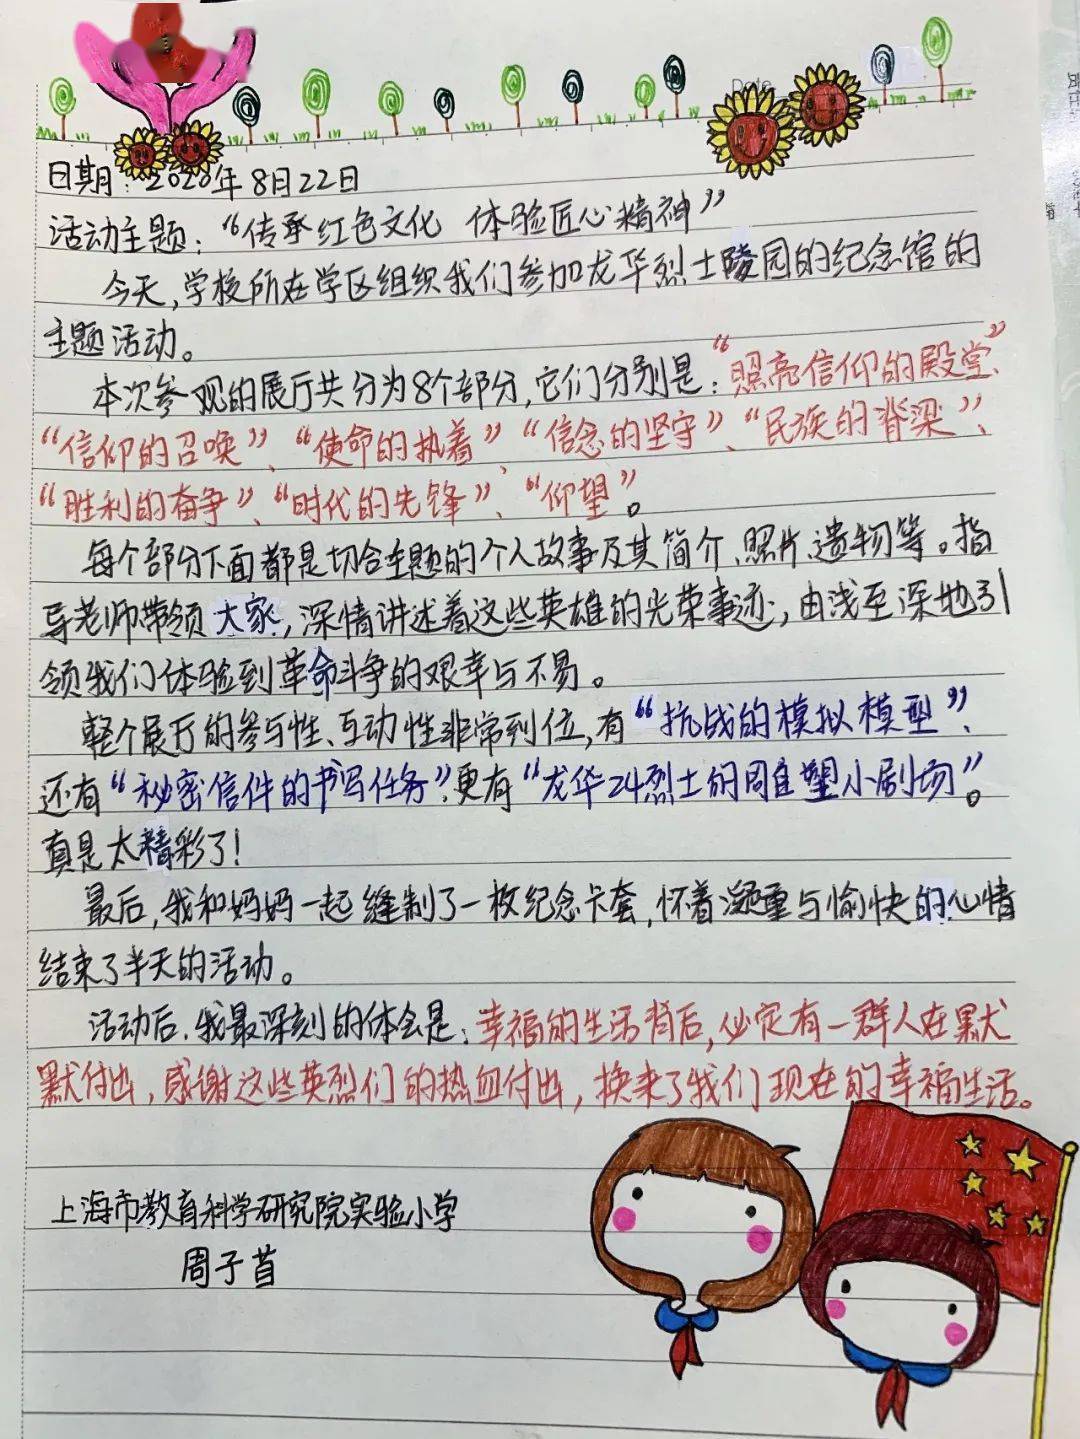 Date
日期：2020年8月22日
活动主题：“传承红色文化 体验匠心精神”
今天，学校所在学区组织我们参加龙华烈士陵园的纪念馆的
主题活动。
本次参观的展厅共分为8个部分，它们分别是：“照亮信仰的殿堂”、
“信仰的召唤”、“使命的执着”、“信念的坚守”、“民族的脊梁”、
“胜利的奋争”、“时代的先锋”、“仰望”。
每个部分下面都是切合主题的个人故事及其简介、照片、遗物等。指
导老师带领大家，深情讲述着这些英雄的光荣事迹，由浅至深地引
领我们体验到革命斗争的艰幸与不易。
整个展厅的参与性、互动性非常到位，有“抗战的模拟模型”、
还有“秘密信件的书写任务”，更有“龙华24烈士的周自塑小剧场”。
真是太精彩了！
最后，我和妈妈一起缝制了一枚纪念卡套，怀着凝重与愉快的心情
结束了半天的活动。
活动后，我最深刻的体会是：幸福的生活背后，必定有一群人在默
默付出，感谢这些英烈们的热血付出，换来了我们现在的幸福生活。
上海市教育科学研究院实验小学
周子